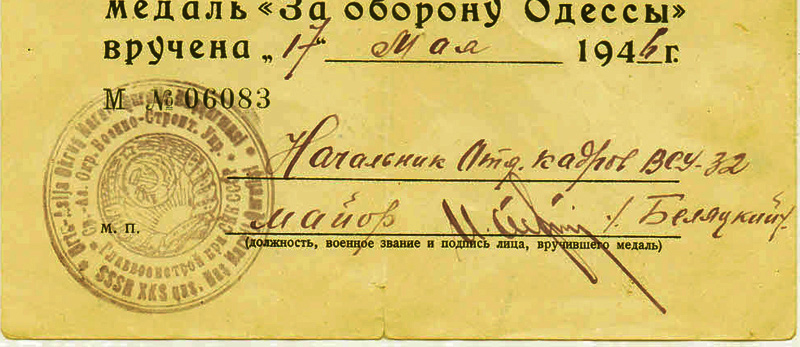 медаль «За оборону Одессы»
вручена „17“ мая 1946 г.
М № 06083
Начальник Отд. кадров ВСУ-32
майор / Беляцкий /
М. П.
(должность, военное звание и подпись лица, вручившего медаль)
Ср.-Аз. Окр. Военно-Строит. Упр.
Главвоенстрой при СНК СССР